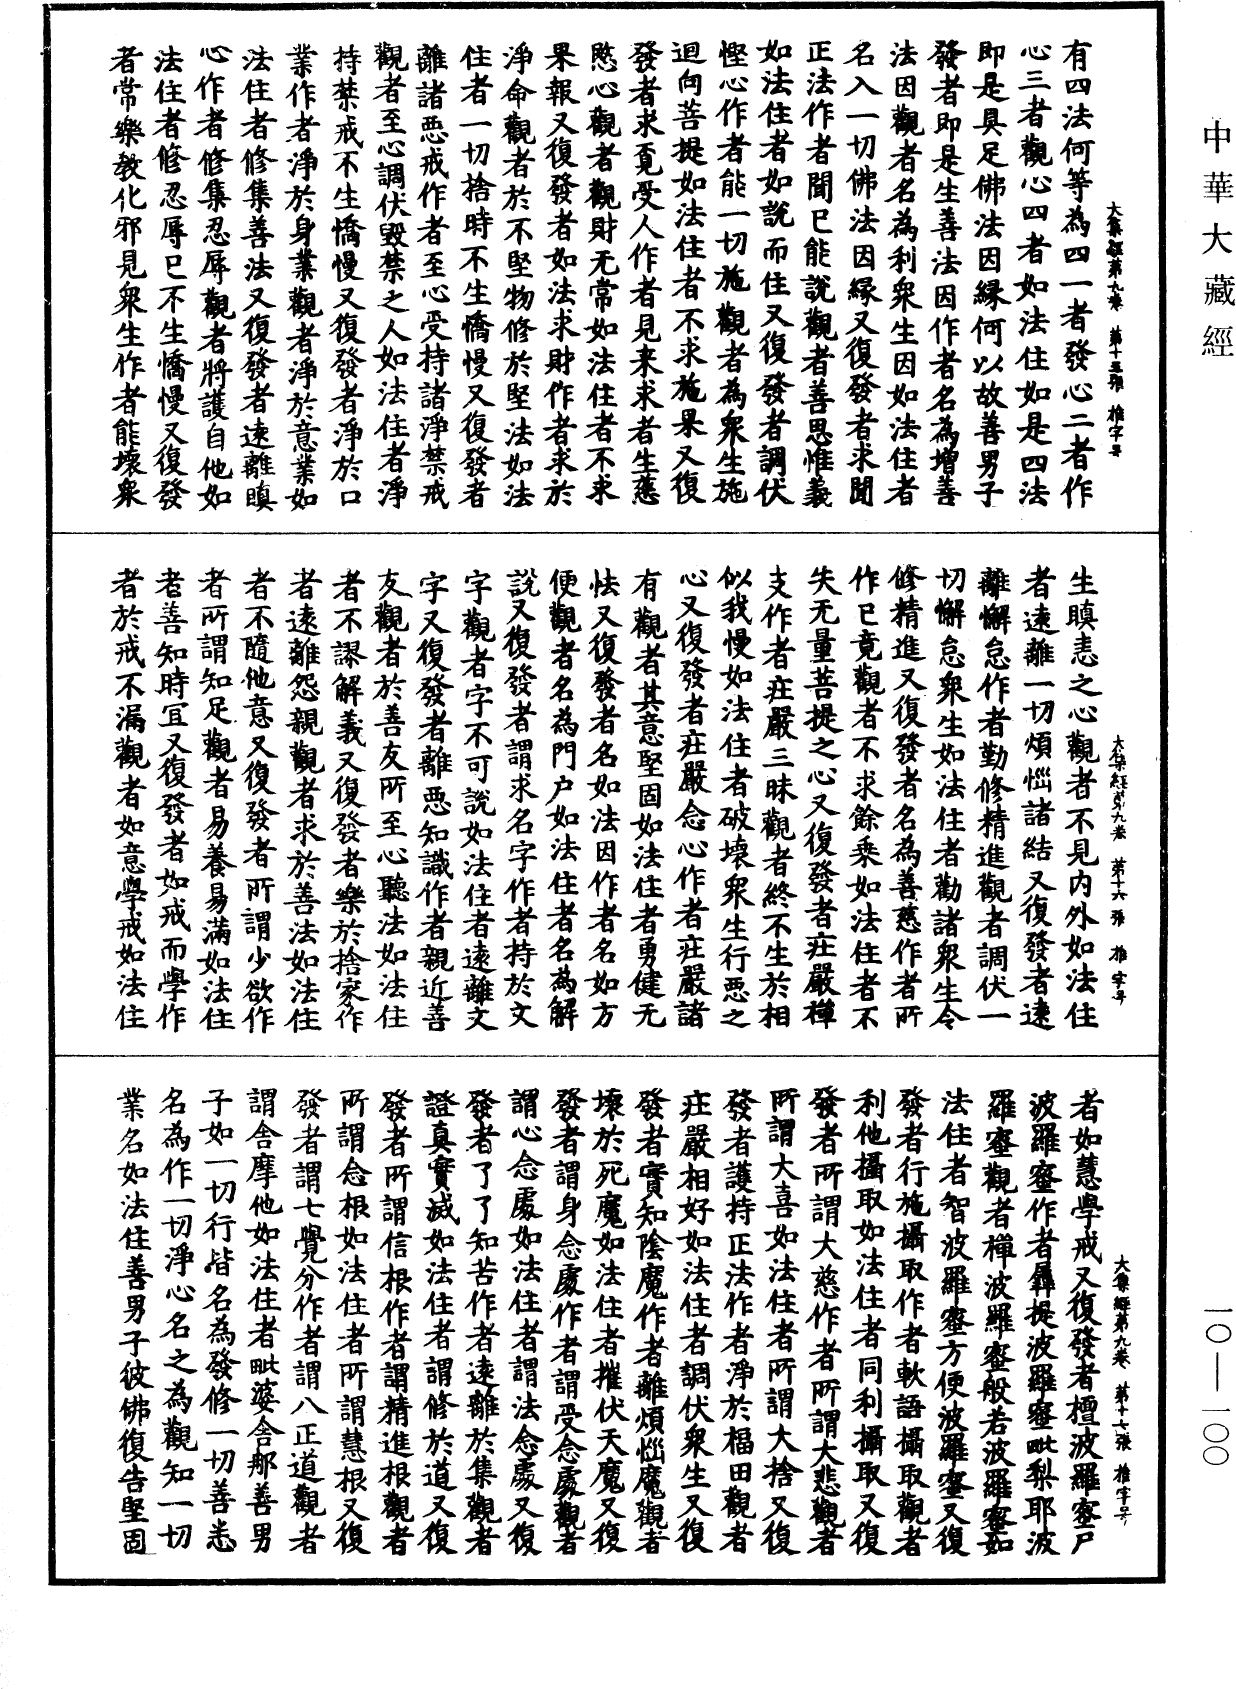 中華大藏經
大集經第九卷　第十五張　推字号
有四法何等為四一者發心二者作
心三者觀心四者如法住如是四法
即是具足佛法因緣何以故善男子
發者即是生善法因作者名為增善
法因觀者名為利衆生因如法住者
名入一切佛法因緣又復發者求聞
正法作者聞已能說觀者善思惟義
如法住者如說而住又復發者調伏
慳心作者能一切施觀者為衆生施
迴向菩提如法住者不求施果又復
發者求覓受人作者見来求者生慈
愍心觀者觀財无常如法住者不求
果報又復發者如法求財作者求於
淨命觀者於不堅物修於堅法如法
住者一切捨時不生憍慢又復發者
離諸惡戒作者至心受持諸淨禁戒
觀者至心調伏毀禁之人如法住者淨
持禁戒不生憍慢又復發者淨於口
業作者淨於身業觀者淨於意業如
法住者修集善法又復發者遠離瞋
心作者修集忍辱觀者將護自他如
法住者修忍辱已不生憍慢又復發
者常樂教化邪見衆生作者能壞衆
大集經第九卷　第十六張　推字号
生瞋恚之心觀者不見内外如法住
者遠離一切煩惱諸結又復發者遠
離懈怠作者勤修精進觀者調伏一
切懈怠衆生如法住者勸諸衆生令
修精進又復發者名為善慈作者所
作已竟觀者不求餘乘如法住者不
失无量菩提之心又復發者莊嚴禪
支作者莊嚴三昧觀者終不生於相
似我慢如法住者破壞衆生行惡之
心又復發者莊嚴念心作者莊嚴諸
有觀者其意堅固如法住者勇健无
怯又復發者名如法因作者名如方
便觀者名為門户如法住者名為解
說又復發者謂求名字作者持於文
字觀者字不可說如法住者遠離文
字又復發者離惡知識作者親近善
友觀者於善友所至心聽法如法住
者不謬解義又復發者樂於捨家作
者遠離怨親觀者求於善法如法住
者不隨他意又復發者所謂少欲作
者所謂知足觀者易養易滿如法住
者善知時宜又復發者如戒而學作
者於戒不漏觀者如意學戒如法住
大集經第九卷　第十七張　推字号
者如慧學戒又復發者檀波羅蜜尸
波羅蜜作者羼提波羅蜜毗梨耶波
羅蜜觀者禪波羅蜜般若波羅蜜如
法住者智波羅蜜方便波羅蜜又復
發者行施攝取作者軟語攝取觀者
利他攝取如法住者同利攝取又復
發者所謂大慈作者所謂大悲觀者
所謂大喜如法住者所謂大捨又復
發者護持正法作者淨於福田觀者
莊嚴相好如法住者調伏衆生又復
發者實知陰魔作者離煩惱魔觀者
壞於死魔如法住者摧伏天魔又復
發者謂身念處作者謂受念處觀者
謂心念處如法住者謂法念處又復
發者了了知苦作者遠離於集觀者
證真實滅如法住者謂修於道又復
發者所謂信根作者謂精進根觀者
所謂念根如法住者所謂慧根又復
發者謂七覺分作者謂八正道觀者
謂舍摩他如法住者毗婆舍那善男
子如一切行皆名為發修一切善悉
名為作一切淨心名之為觀知一切
業名如法住善男子彼佛復告堅固
一〇—一〇〇